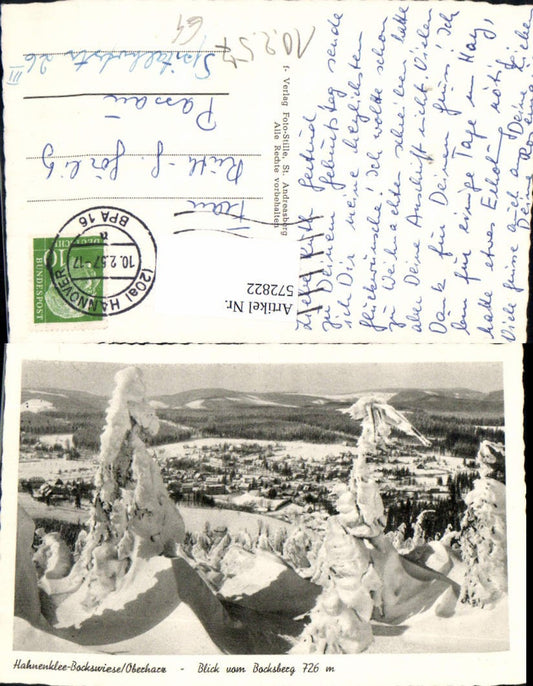 10.2.57
Liebe Ruth-Gertrud
zu Deinem Geburtstag sende
ich Dir meine herzlichsten
Glückwünsche! Ich wollte schon
zu Weihnachten schreiben, hatte
aber Deine Anschrift nicht. Vielen
Dank für Deinen Gruss! Ich
bin für einige Tage im Harz,
hatte etwas Erholung nötig.
Viele Grüsse auch an Deine Lieben
Deine
f. Verlag Foto-Stille, St. Andreasberg
Alle Rechte vorbehalten
Frau
Ruth-G.
Passau
III
Artikel Nr.
572822
10
DEUTSCHE
BUNDESPOST
(20a) HANNOVER
10.2.57-17
BPA 16
Hahnenklee-Bockswiese/Oberharz - Blick vom Bocksberg 726 m